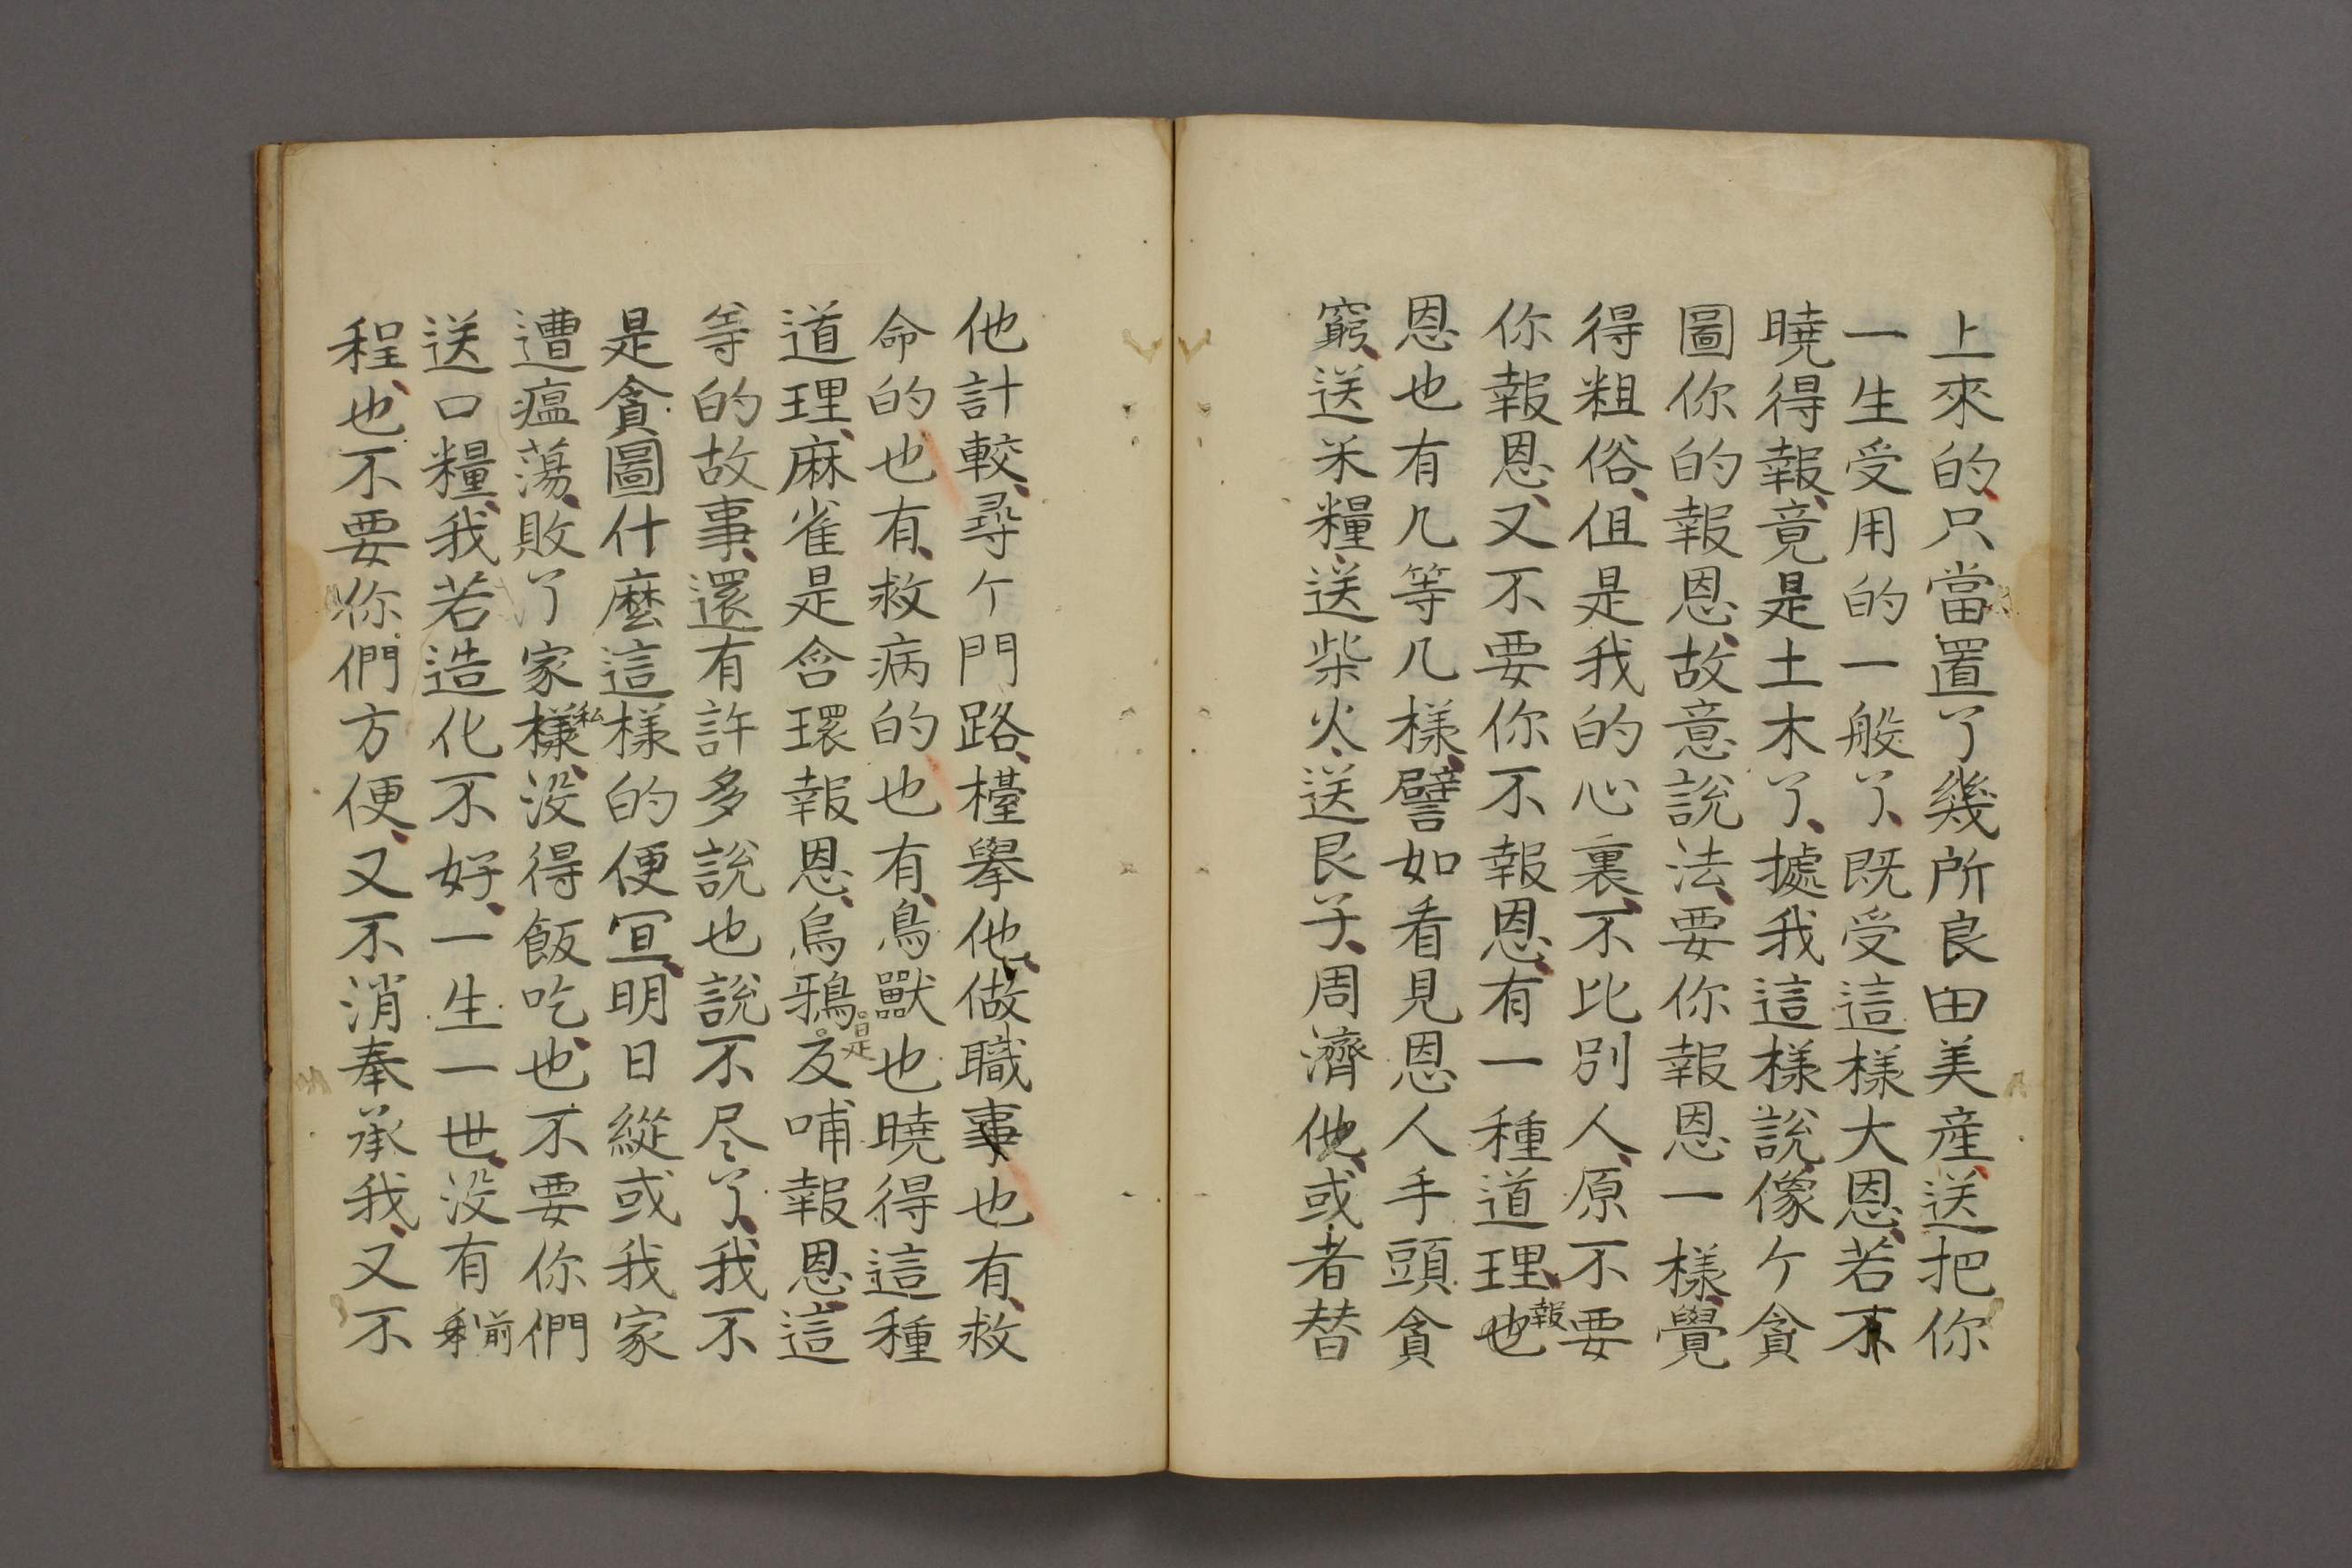 上來的只當置了幾所良田美産送把你
一生受用的一般了既受這樣大恩若不
曉得報竟是土木了據我這樣說像个貪
圖你的報恩故意說法要你報恩一樣覺
得粗俗但是我的心裏不比別人原不要
你報恩又不要你不報恩有一種道理報也
恩也有几等几樣譬如看見恩人手頭貪
窮送米糧送柴火送艮子周濟他或者替
他計較尋个門路檯擧他做職事也有救
命的也有救病的也有鳥獸也曉得這種
道理麻雀是含環報恩烏鴉是反哺報恩這
等的故事還有許多說也說不尽了我不
是貪圖什麼這樣的便冝明日縱或我家
遭瘟蕩敗了家私樣没得飯吃也不要你們
送口糧我若造化不好一生一世没有前
程也不要你們方便又不消奉承我又不